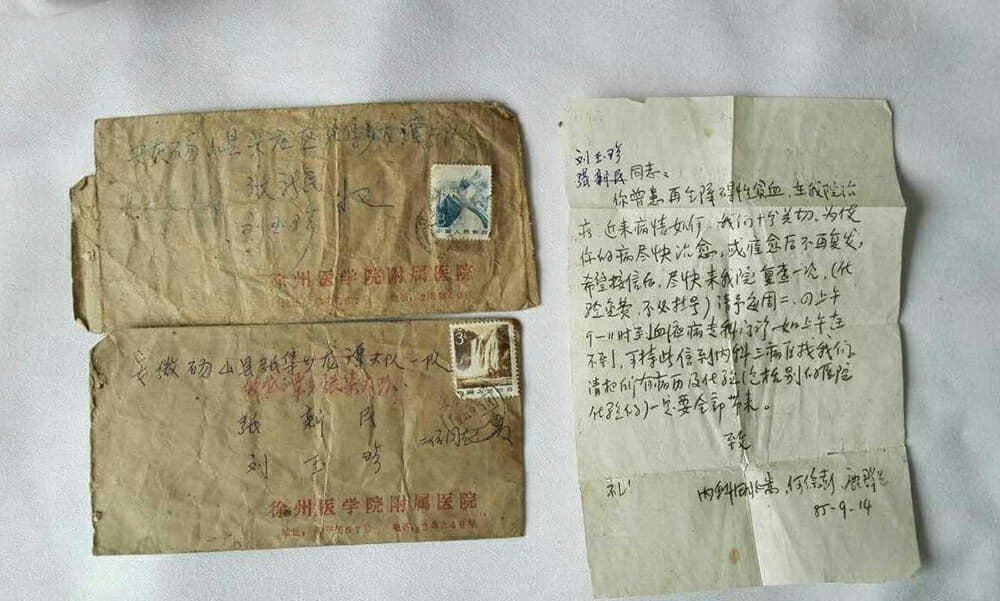 砀山县
张
民
刘玉珍
8
中国人民邮政
徐州医学院附属医院
安徽砀山县張集乡龙潭大队一队
張集大队
张 民
刘玉珍
二位同志  收
3
中国人民邮政
徐州医学院附属医院
67号 电话:23240号
刘玉珍
民 同志:
你曾患再生障碍性贫血,在我院治
疗,近来病情如何,我们十分关切。为使
你的病尽快治愈,或痊愈后不再复发,
希望接信后,尽快来我院复查一次,(化
验免费,不必挂号)请予每周二、四上午
9-11时到血液病专科门诊,如上午
不到,可持此信到内科三病区找我们,
请把所有病历及化验(包括别的医院
化验的)一定要全部带来。
致
礼!
内科 何徐彭
85-9-14